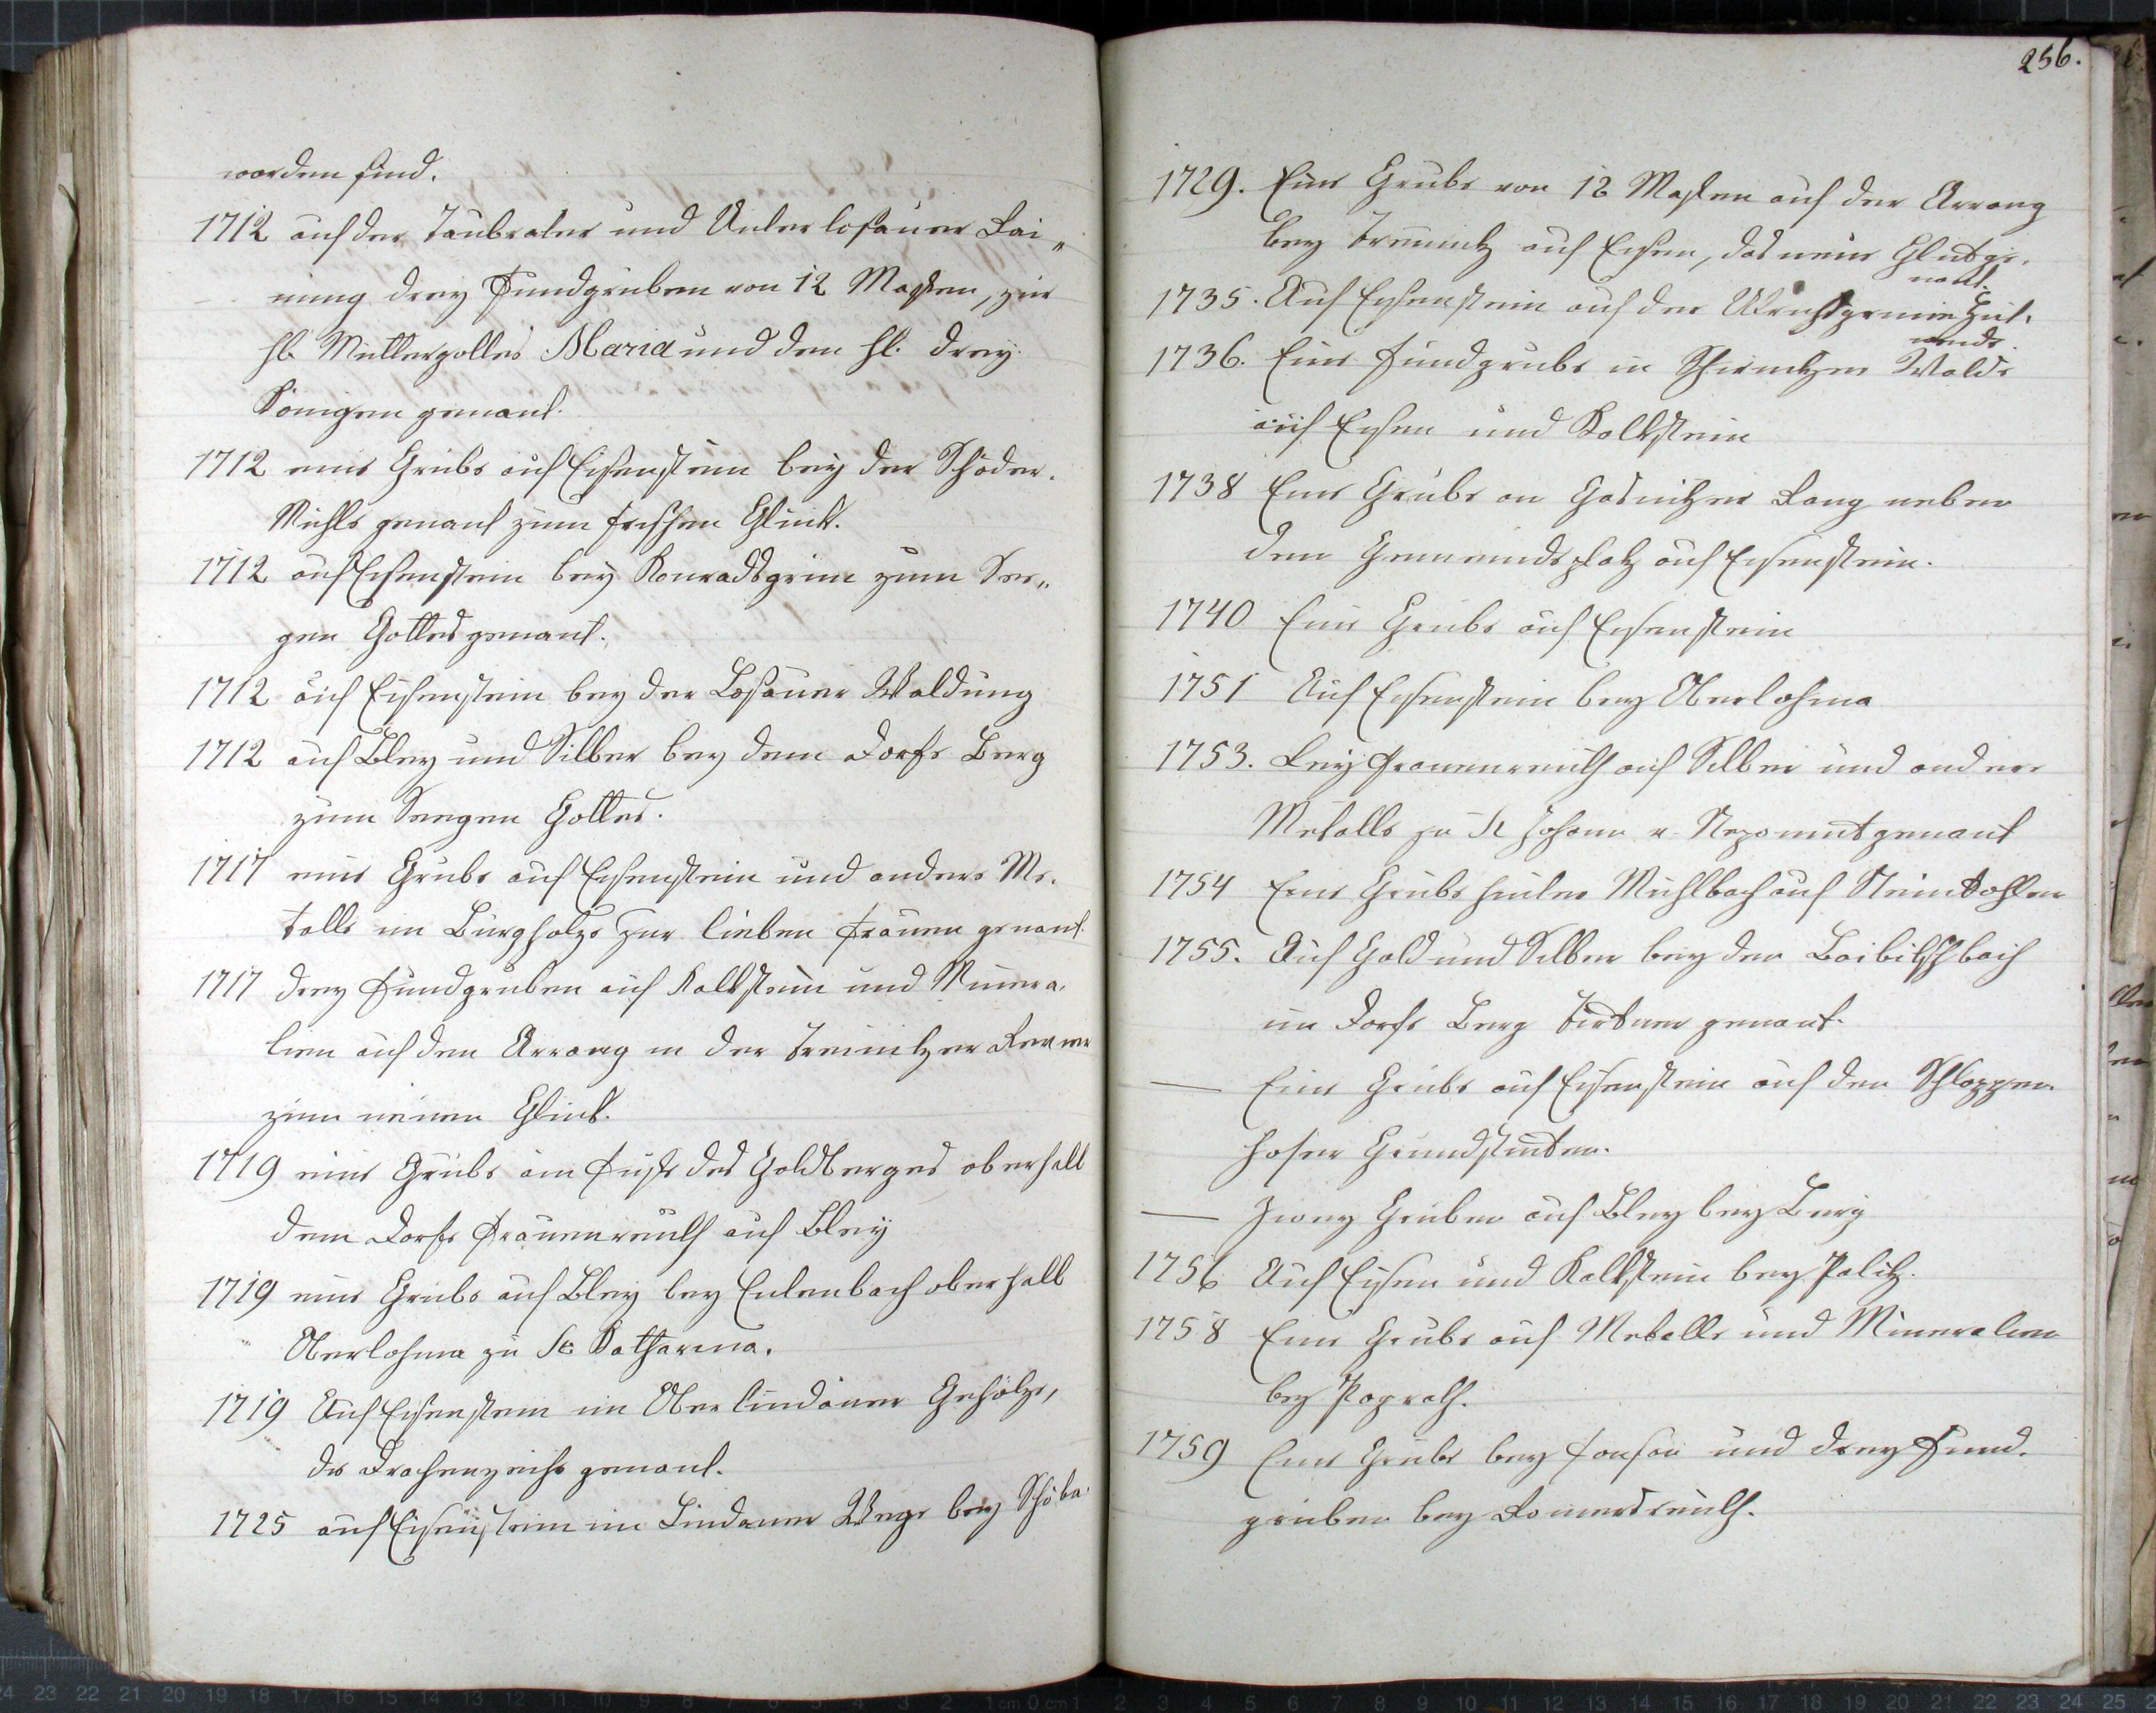 worden sind.
1712 auf der Taubrater und Unter losauer Rai„
nung drey Fundgruben von 12 Maßen, zur
hl. Muttergottes Maria und den hl. drey
Königen genant.
1712 eine Grube auf Eisenstein bey der Schöder.
Mühle genant zum frischen Glück.
1712 auf Eisenstein bey Konradsgrün zum See„
gen Gottes genant.
1712 auf Eisenstein bey der Losauer Waldung
1712 auf Bley und Silber bey dem Dorfe Berg
zum Seegen Gottes.
1717 eine Grube auf Eisenstein und andere Me.
talle im Burgholze zur lieben Frauen genant.
1717 drey Fundgruben auf Kalkstein und Minera.
lien auf den Arrang in der Treinitzer Revier
zum neuen Glück.
1719 eine Grube am Fuße des Goldberges oberhalb
dem Dorfe Frauenreuth auf Bley
1719 eine Grube auf Bley bey Eulenbach oberhalb
Oberlohma zu St Katharina.
1719 Auf Eisenstein im Oberlindauer Gehölze,
die Drahenzeche genant.
1725 auf Eisenstein im Lindauer Wege bey Schöba.
256.
1729. Eine Grube von 12 Maßen auf der Arrang
bey Treinitz auf Eisen, das neue Glück ge.
nant.
1735. Auf Eisenstein auf der Konradsgrüner Hut.
wende.
1736. Eine Fundgrube in Schirnitzer Walde
auf Eisen und Kalkstein
1738 Eine Grube am Gasnitzer Rang neben
dem Gemeindeplatz auf Eisenstein.
1740 Eine Grube auf Eisenstein
1751 Auf Eisenstein bey Oberlohma
1753. Bey Frauenreuth auf Silber und andere
Metalle zu St Johann v. Nepomuk genant
1754 Eine Grube hinter Mühlbach auf Steinkohlen
1755. Auf Gold und Silber bey der Leibitschbach
im Dorfe Berg genant.
— Eine Grube auf Eisenstein auf den Schloppen
hofer Grundstücken.
— Zwey Gruben auf Bley bey Berg
1756 Auf Eisen und Kalkstein bey Palitz.
1758 Eine Grube auf Metalle und Mineralien
bey Pograth.
1759 Eine Grube bey Fonsau und drey Fund.
gruben bey Romersreuth.